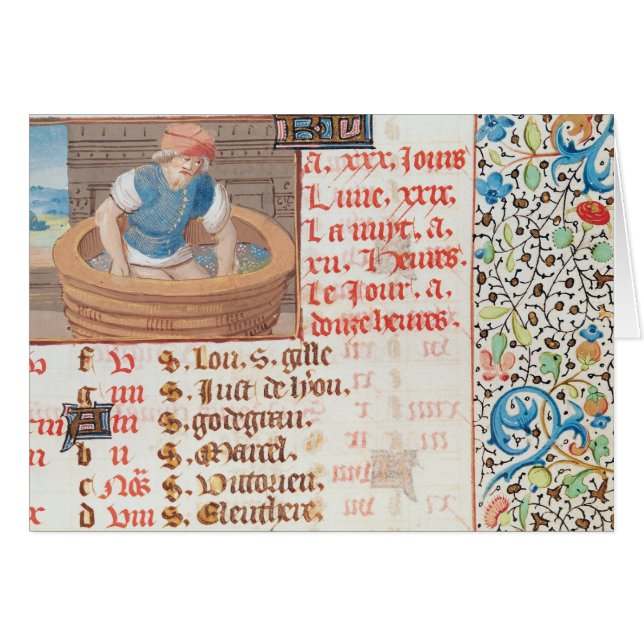 a. xxx. Jours
Lune. xxix.
La nuyt. a.
xii. Heures.
Le Jour. a.
douze heures.
v f v S. Lou, S. gille
g iiii S. Just de lyon.
A iii S. godegran.
b ii S. Marcel.
c Nõs S. Victorien.
x d viii S. Eleuthere.